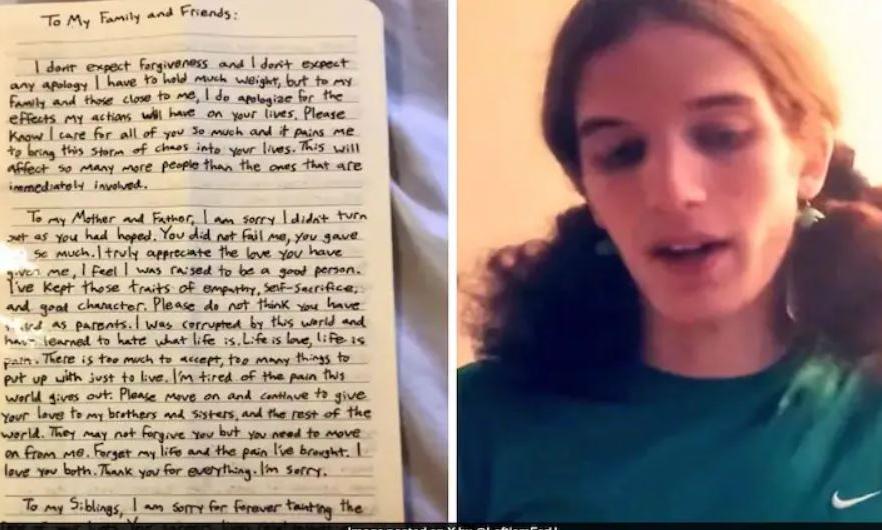 To My Family and Friends:
I dont expect forgiveness and I don't expect
any apology I have to hold much weight, but to my
family and those close to me, I do apologize for the
effects my actions will have on your lives. Please
Know I care for all of you so much and it pains me
to bring this storm of chaos into your lives. This will
affect so many more people than the ones that are
immediately involved.
To my Mother and Father, I am sorry I didn't turn
out as you had hoped. You did not fail me, you gave
so much. I truly appreciate the love you have
given me, I feel I was raised to be a good person.
I've kept those traits of empathy, self-sacrifice,
and good character. Please do not think you have
as parents. I was corrupted by this world and
have learned to hate what life is. Life is love, life is
pain. There is too much to accept, too many things to
put up with just to live. I'm tired of the pain this
world gives out. Please move on and continue to give
your love to my brothers and sisters, and the rest of the
world. They may not forgive you but you need to move
on from me. Forget my life and the pain I've brought. I
love you both. Thank you for everything. I'm sorry.
To my Siblings, I am sorry for forever the